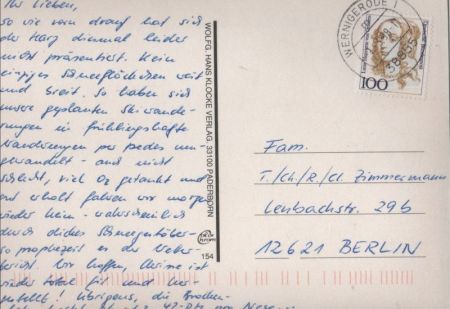 Ihr Lieben,
so wie vorn drauf hat sich
der Harz diesmal leider
nicht präsentiert. Kein
einziges Schneeglöckchen weit
und breit. So haben sich
unsere geplanten Skiwande-
rungen in frühlingshafte
Wanderungen per pedes um-
gewandelt - und nicht
schlecht, viel O₂ getankt und
gut erholt fahren wir morgen
wieder heim - wahrscheinlich
durch dichtes Schneegestöber -
so prophezeit es der Wetter-
bericht. Wir hoffen, ist
wieder total fit und her-
gestellt! Übrigens, die
WOLFG. HANS KLOCKE VERLAG, 33100 PADERBORN
154
WERNIGERODE 1
38855
100
Fam.
T./Ch./R./Cl. Zimmermann
Lenbachstr. 29b
12621 BERLIN